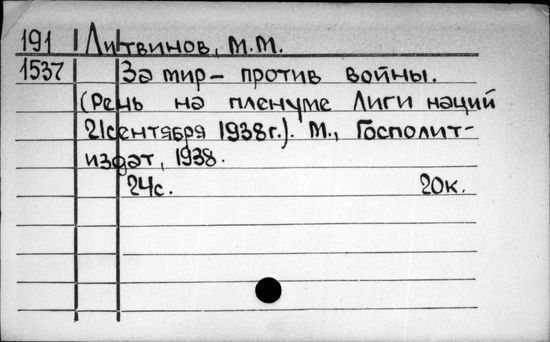 191 Литвинов, М.М.
1537 За мир - против войны.
(Речь на пленуме Лиги наций
21 сентября 1938 г.). М., Госполит-
издат, 1938.
24с. 20к.